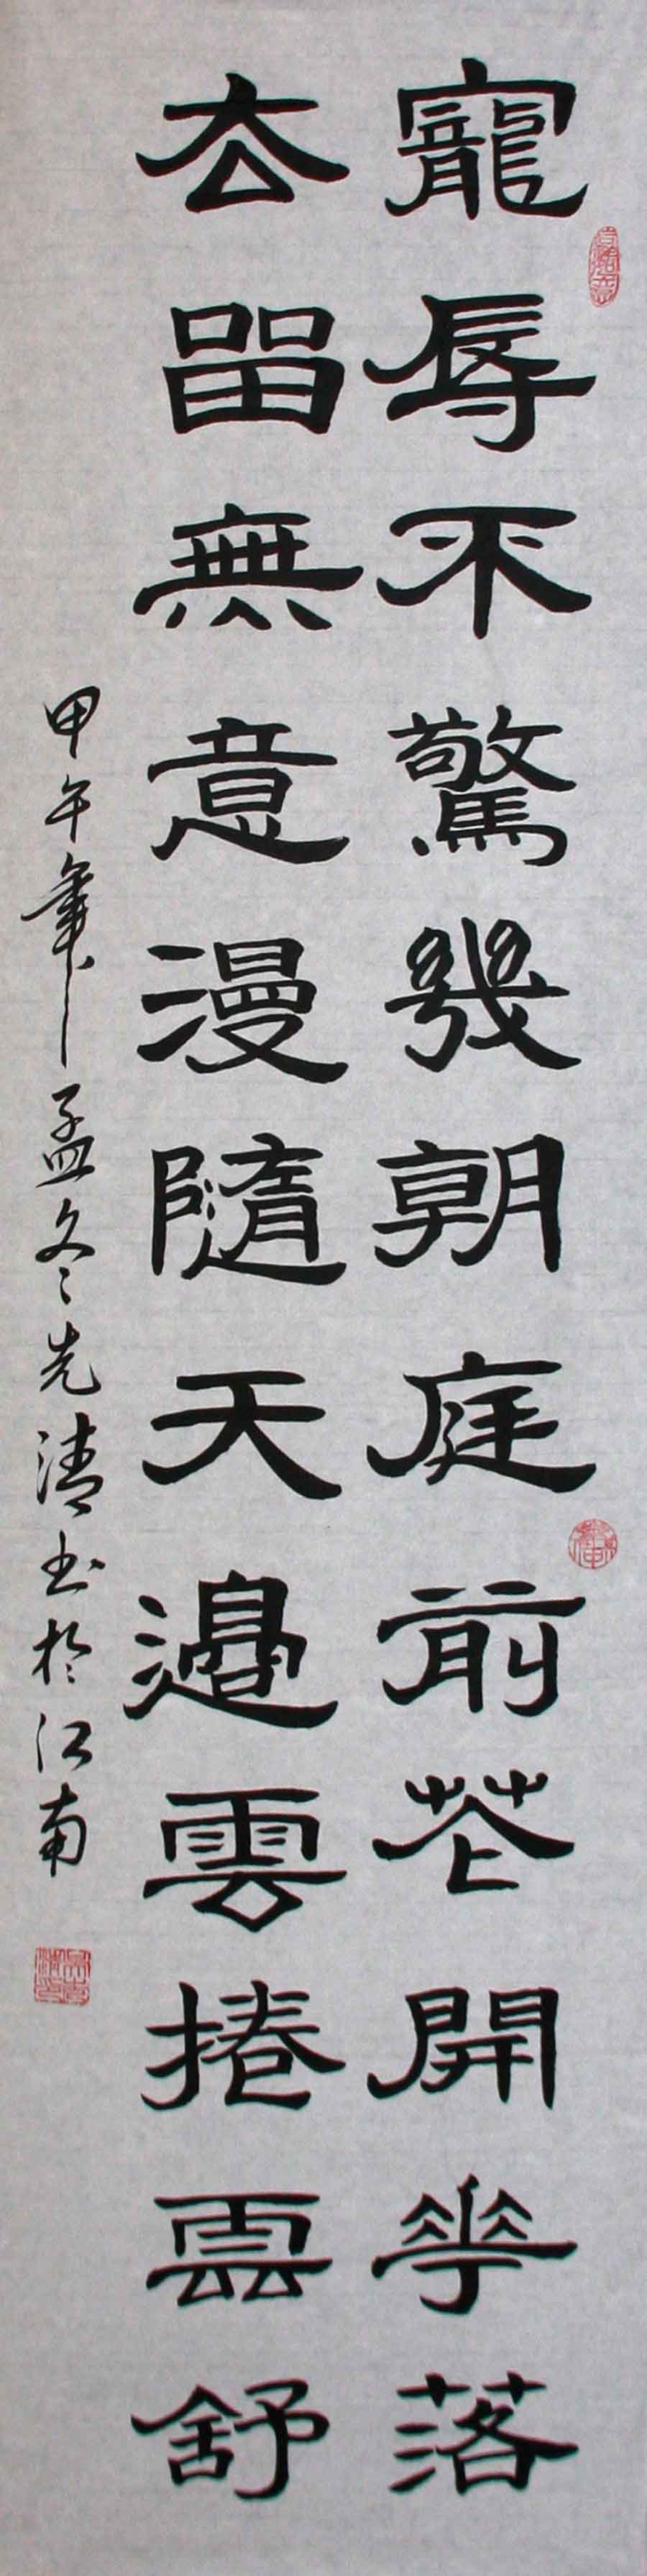 寵辱不驚幾朝庭前花開華落
去留無意漫隨天邊雲捲雲舒
甲午年孟冬先清書於江南